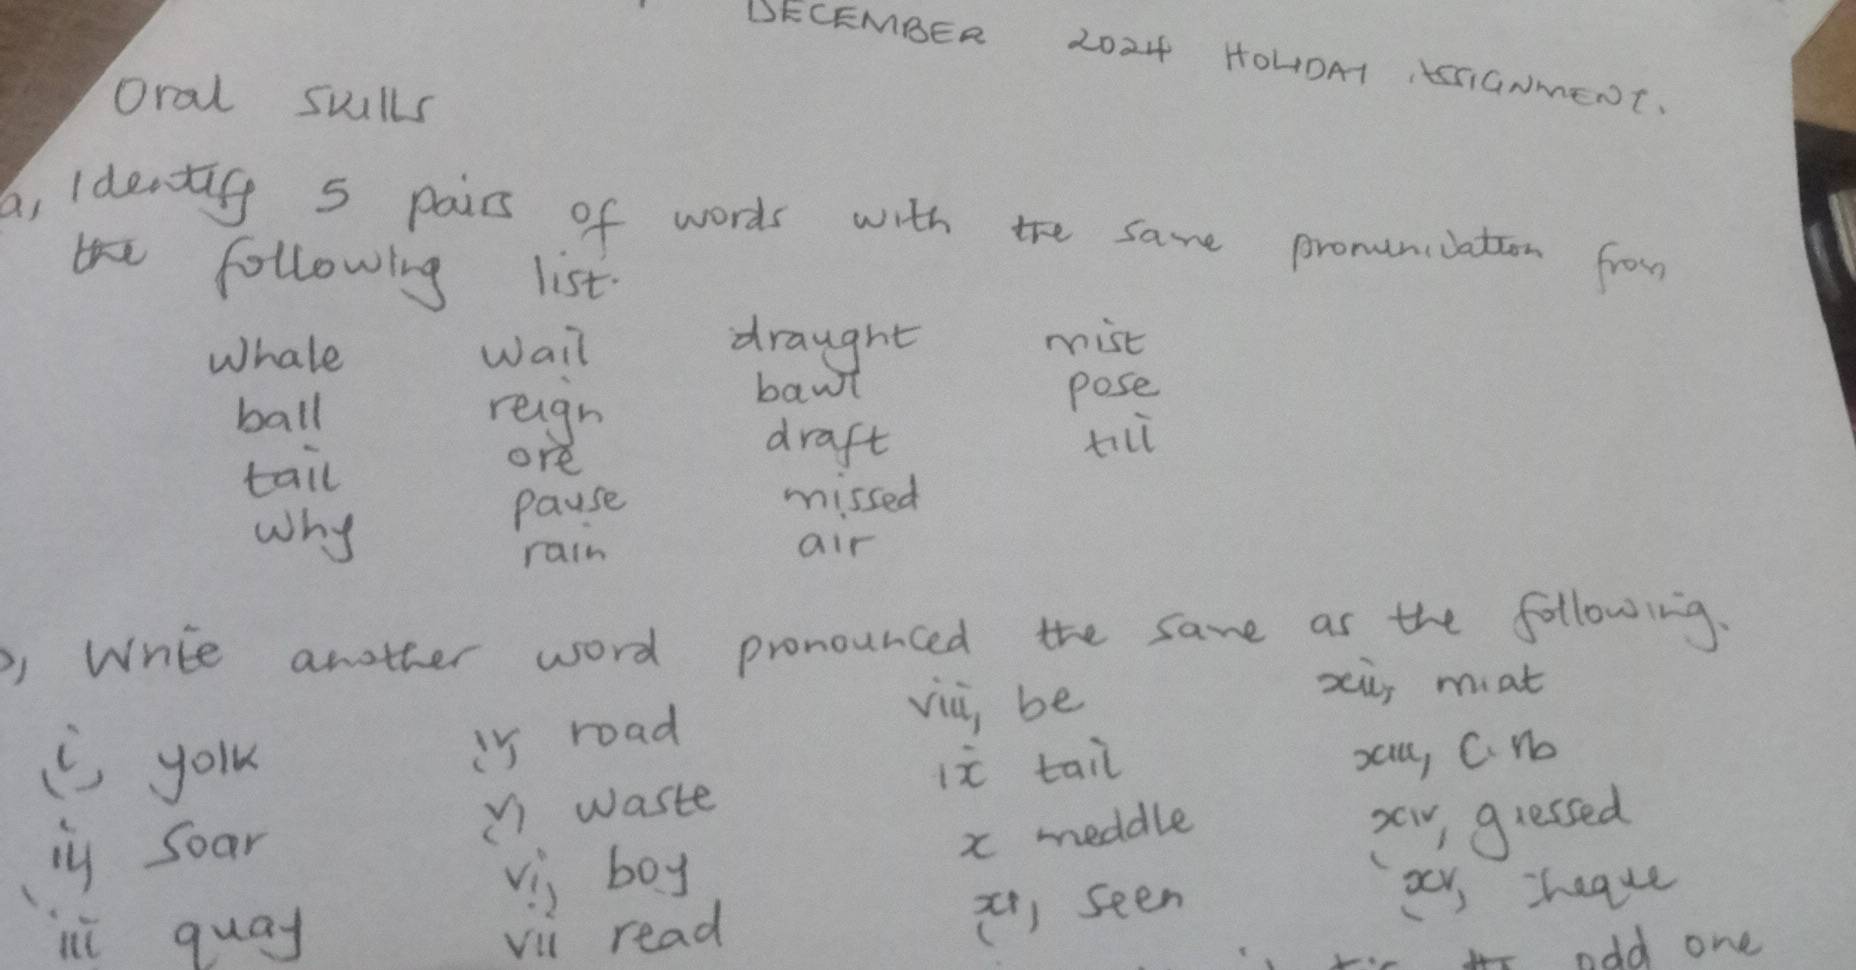 DECEMBER 2024 HOLIDAY ASSIGNMENT.
Oral skills
a, Identify 5 pairs of words with the same pronunciation from
the following list.
whale wail draught mist
ball reign bawl pose
tail ore draft till
why pause missed
rain air
b, Write another word pronounced the same as the following.
i, yolk iv, road viii, be xii, meat
ii, soar v, waste ix tail xiii,
iii quay vi, boy x meddle xiv, guessed
vii read xi, seen xv, cheque
the odd one